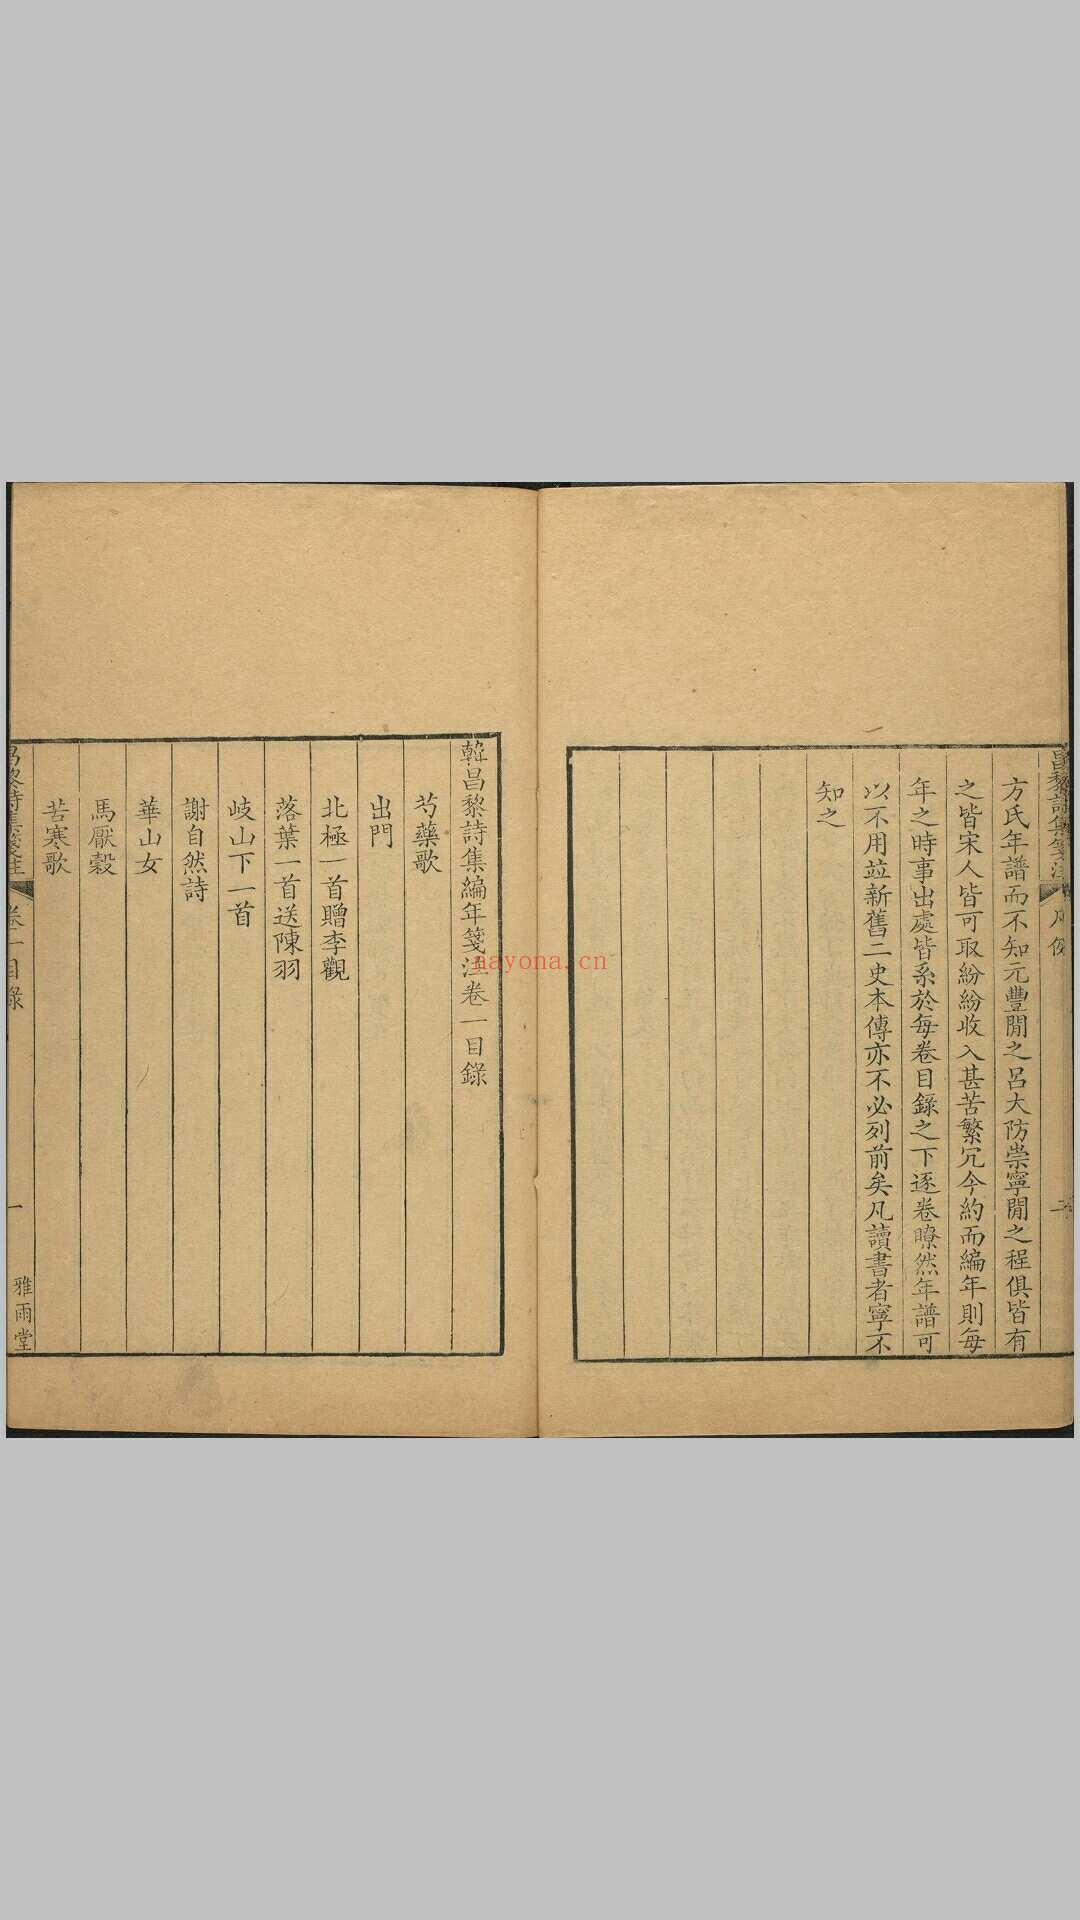 方氏年譜而不知元豐閒之呂大防崇寧閒之程俱皆有
之皆宋人皆可取紛紛收入甚苦繁冗今約而編年則每
年之時事出處皆系於每卷目錄之下逐卷瞭然年譜可
以不用竝新舊二史本傳亦不必列前矣凡讀書者寧不
知之
韓昌黎詩集編年箋注卷一目錄
芍藥歌
出門
北極一首贈李觀
落葉一首送陳羽
岐山下一首
謝自然詩
華山女
馬厭穀
苦寒歌
卷一目錄
一
雅雨堂
nayona.cn